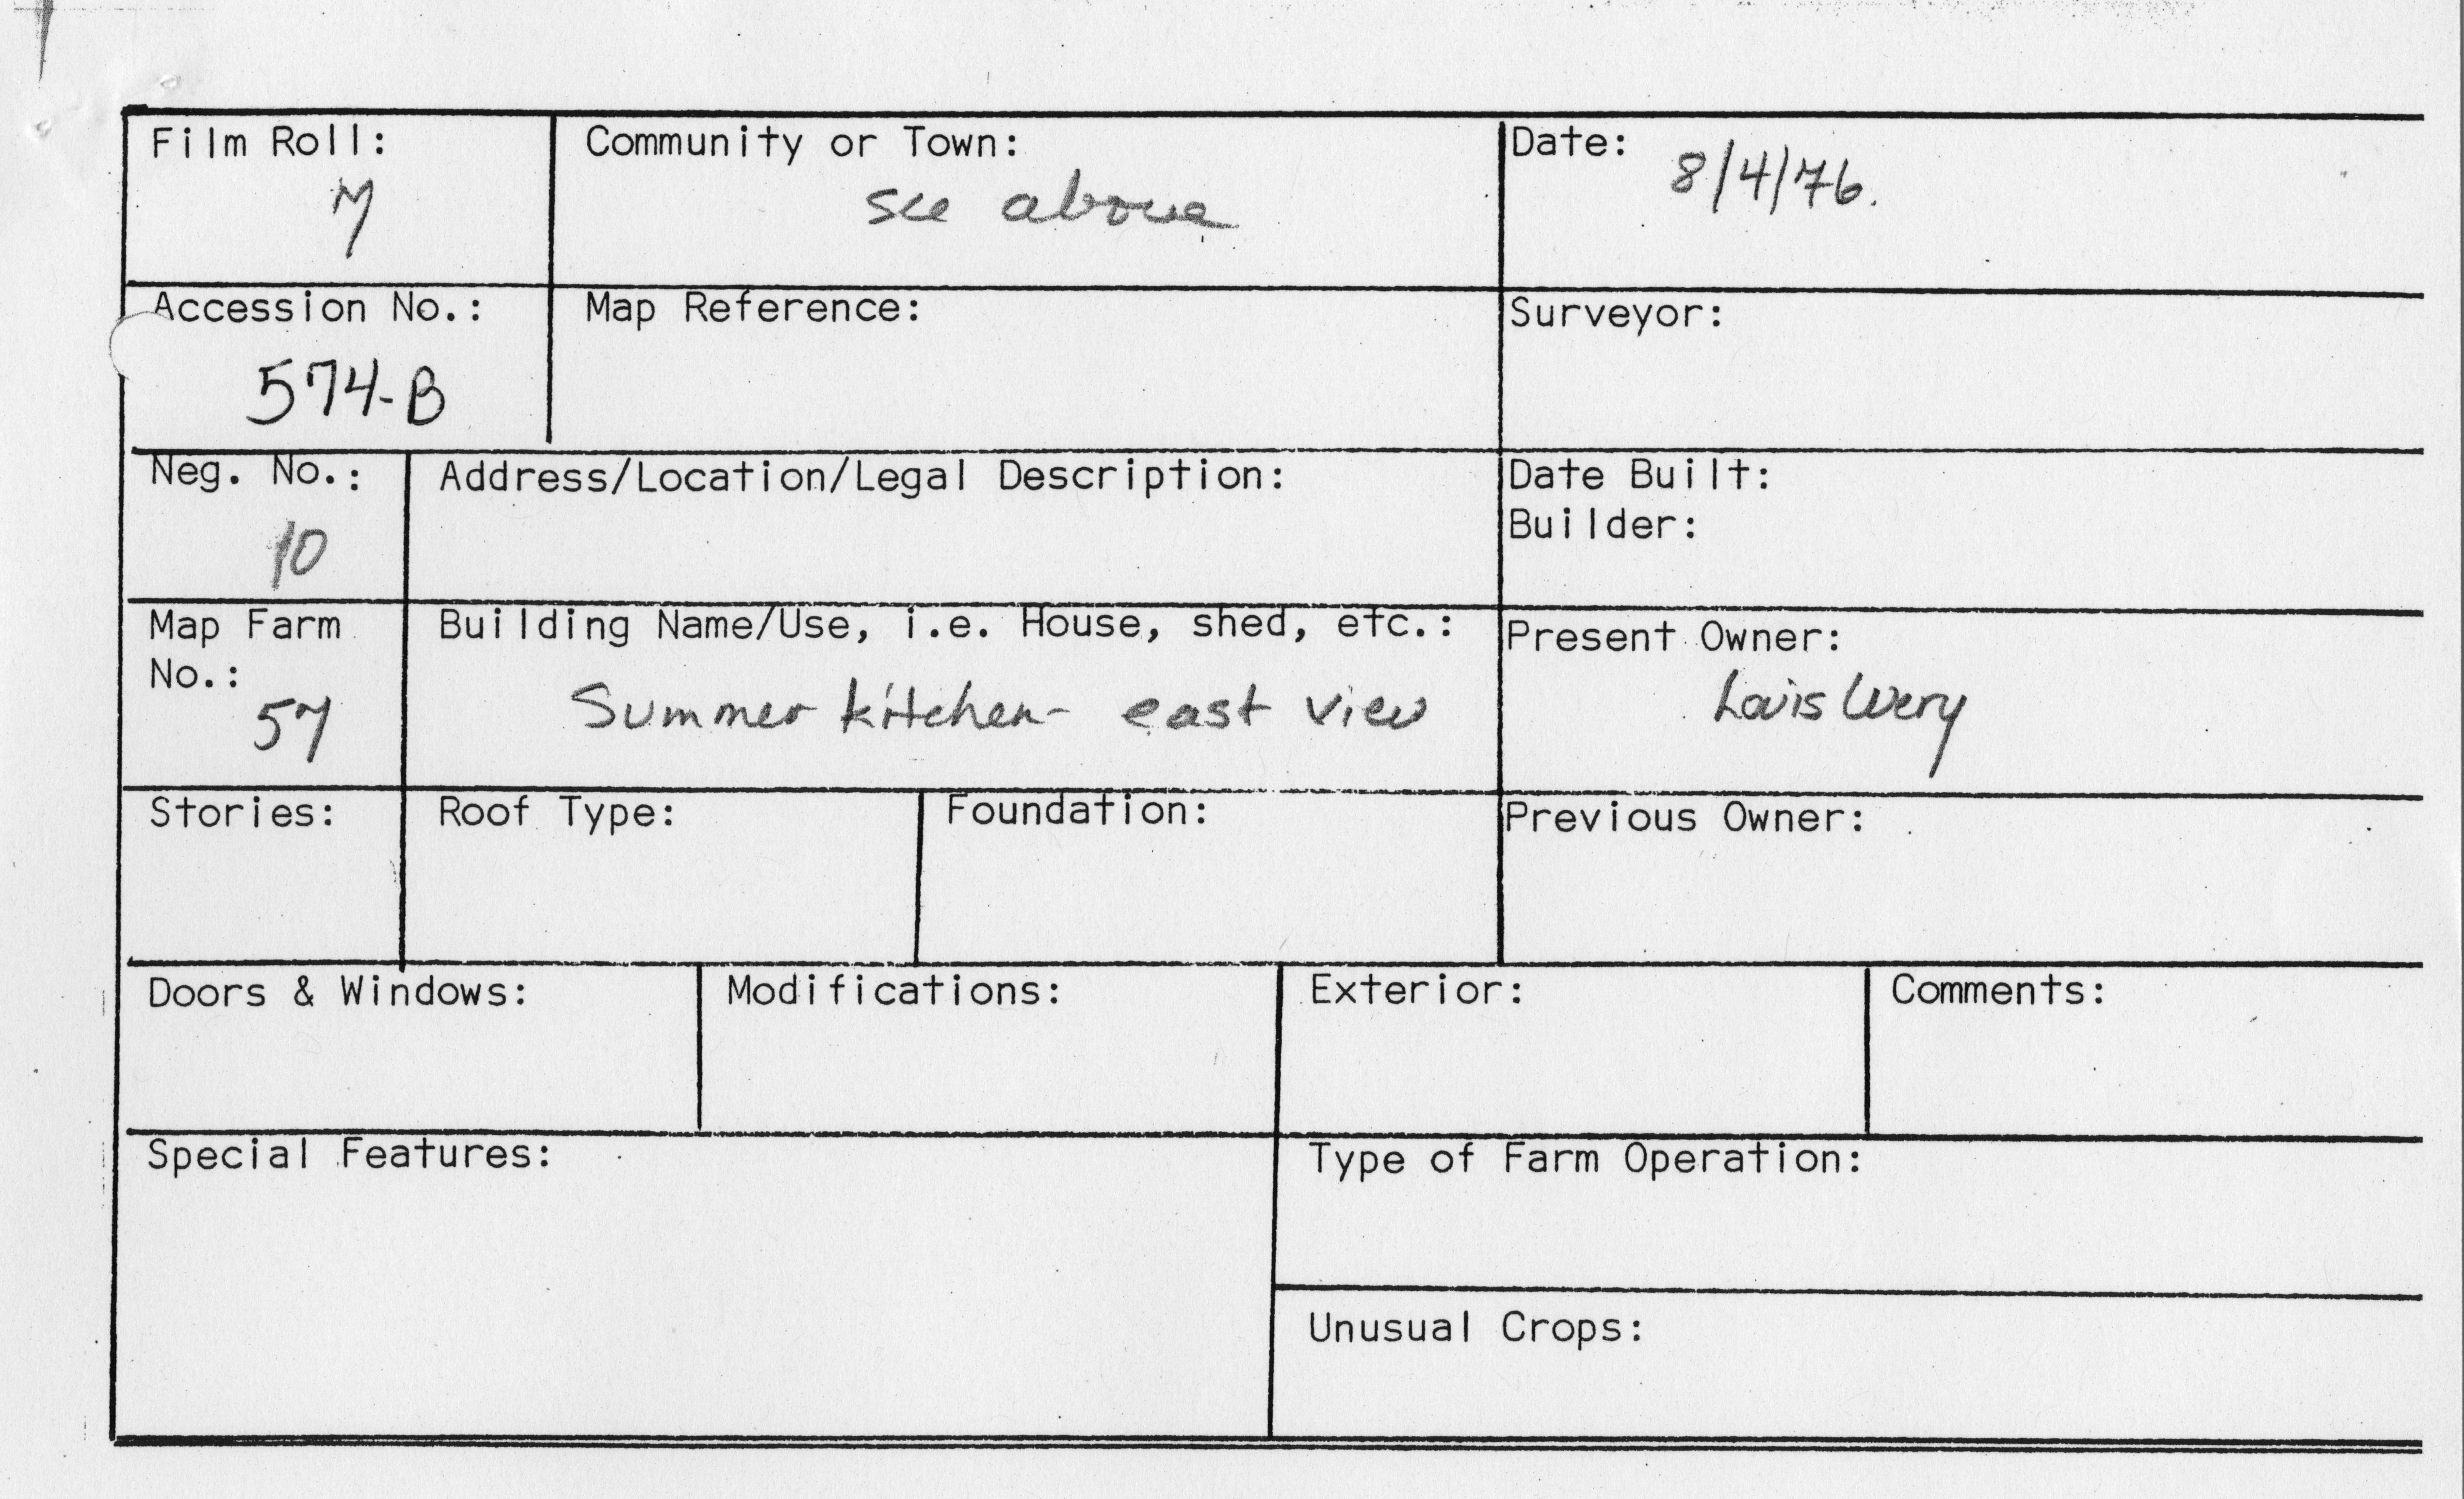 Film Roll:
7
Community or Town:
see above
Date:
8/4/76.
Accession No.:
574-B
Map Reference:
Surveyor:
Neg. No.:
10
Address/Location/Legal Description:
Date Built:
Builder:
Map Farm
No.:
57
Building Name/Use, i.e. House, shed, etc.:
Summer kitchen- east view
Present Owner:
Louis Wery
Stories:
Roof Type:
Foundation:
Previous Owner:
Doors & Windows:
Modifications:
Exterior:
Comments:
Special Features:
Type of Farm Operation:
Unusual Crops: